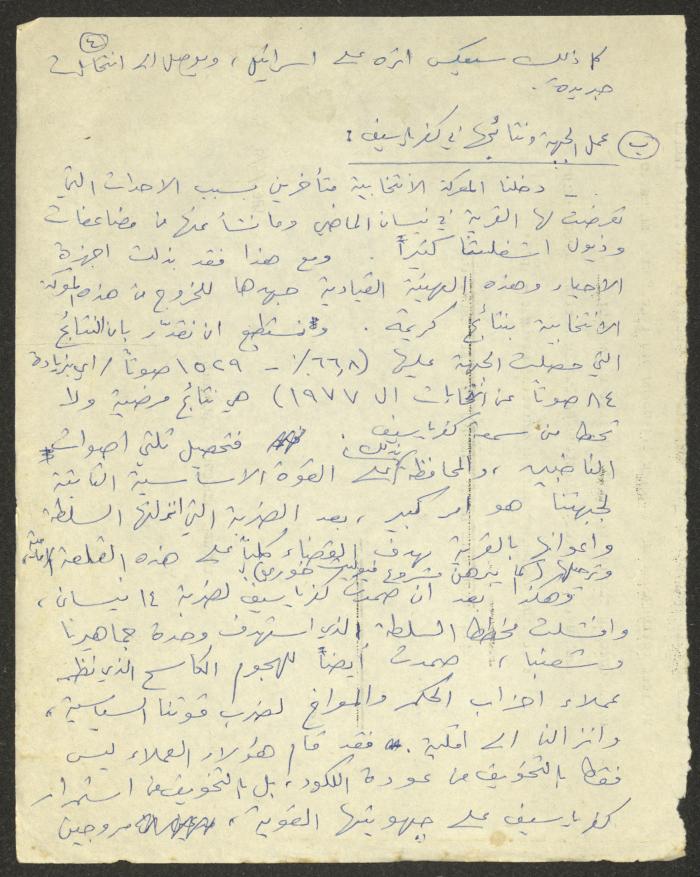 (٤)
كل ذلك سيعكس اثره على اسرائيل، ويوصل الى انتخابات
جديدة.
(ب) عمل الجبهة ونتائجها في كفرياسيف:
- دخلنا المعركة الانتخابية متأخرين بسبب الاحداث التي
تعرضت لها القرية في نيسان الماضي وما نشأ عنها من مضاعفات
وذيول اشغلتنا كثيراً. ومع هذا فقد بذلت اجهزة
الاحياء وهذه الهيئة القيادية جهدها للخروج من هذه المعركة
الانتخابية بنتائج كريمة. ونستطيع ان نقدّر بان النتائج
التي حصلت الجبهة عليها (٦٦,٨٪ - ١٥٢٩ صوتاً / اي بزيادة
٨٤ صوتاً عن انتخابات ال ١٩٧٧) هي نتائج مرضية ولا
تحط من سمعة كفرياسيف. فتحصيل ثلثي اصوات
الناخبين، والمحافظة بذلك على القوة الاساسية الثابتة
لجبهتنا هو امر كبير، بعد الضربة التي انزلتها السلطة
واعوانها بالقرية بهدف القضاء كلياً على هذه القلعة
(كما يبرهن مشروع خوري)
وهكذا بعد ان صمدت كفرياسيف لضربة ١٤ نيسان،
وافشلت مخطط السلطة الذي استهدف وحدة جماهيرنا
وشعبنا، صمدت أيضاً للهجوم الكاسح الذي نظمه
عملاء احزاب الحكم والمراخ لضرب قوتنا السياسية،
وانزالنا الى اقلية. فقد قام هؤلاء العملاء ليس
فقط بالتخويف من عودة الليكود، بل بالتخويف من استمرار
كفرياسيف على جبهويتها القوية، مروجين